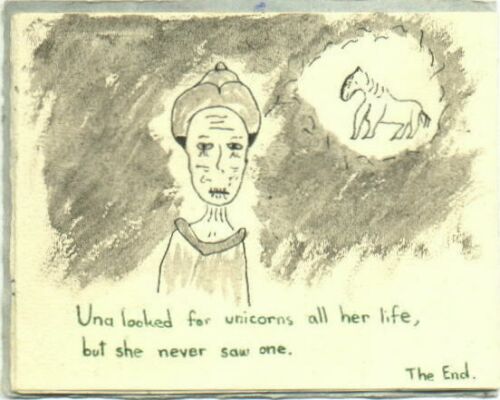 Una looked for unicorns all her life,
but she never saw one.
The End.